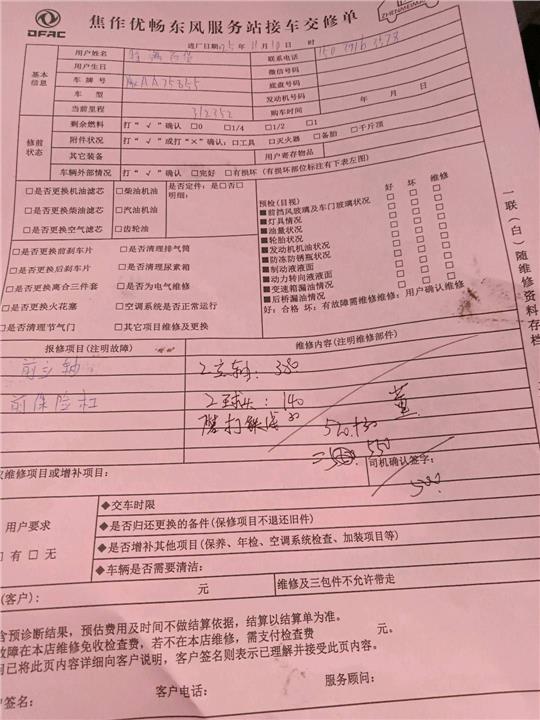 DFAC
焦作优畅东风服务站接车交修单
ZHENMEIMA
进厂日期:25年11月10日 时
用户姓名
联系电话 150 3916 3578
基本信息
用户生日
微信号码
车牌号
底盘号码
车型
发动机号码
当前里程 312352
购车时间 年 月 日
修前状态
剩余燃料 打“√”确认 □0 □1/4 □1/2 □1
附件状况 打“√”或打“×”确认:□工具 □灭火器 □备胎 □千斤顶
其它装备
用户寄存物品
车辆外部情况 打“√”确认 □完好 □有损坏(有损坏部位标注有下表左图)
□是否更换机油滤芯 □柴油机油 是否定件:是□否□
明细:
□是否更换柴油滤芯 □汽油机油
□是否更换空气滤芯 □齿轮油
□是否更换前刹车片 □是否清理排气筒
□是否更换后刹车片 □是否清理尿素箱
□是否更换离合三件套 □是否为电气维修
□是否更换火花塞 □空调系统是否正常运行
□是否清理节气门 □其它项目维修及更换
预检(目视) 好 坏 维修
■前挡风玻璃及车门玻璃状况 □ □ □
■灯具情况 □ □ □
■油量状况 □ □ □
■轮胎状况 □ □ □
■发动机机油状况 □ □ □
■防冻防锈瓶状况 □ □ □
■制动液液面 □ □ □
■动力转向液液面 □ □ □
■变速箱漏油情况 □ □ □
■后桥漏油情况 □ □ □
好:合格 坏:有故障需维修维修:用户确认维修
一联(白)随维修资料存档
报修项目(注明故障)
维修内容(注明维修部件)
前立轴
2立轴:380
前保险杠
2球头:140
董
520+30
=550
议维修项目或增补项目:
司机确认签字:
500
用户要求
□有 □无
◆交车时限
◆是否归还更换的备件(保修项目不退还旧件)
◆是否增补其他项目(保养、年检、空调系统检查、加装项目等)
◆车辆是否需要清洁:
(客户): 元
维修及三包件不允许带走
含预诊断结果,预估费用及时间不做结算依据,结算以结算单为准。
故障在本店维修免收检查费,若不在本店维修,需支付检查费 元。
司已将此页内容详细向客户说明,客户签名则表示已理解并接受此页内容。
户签名: 客户电话: 服务顾问: